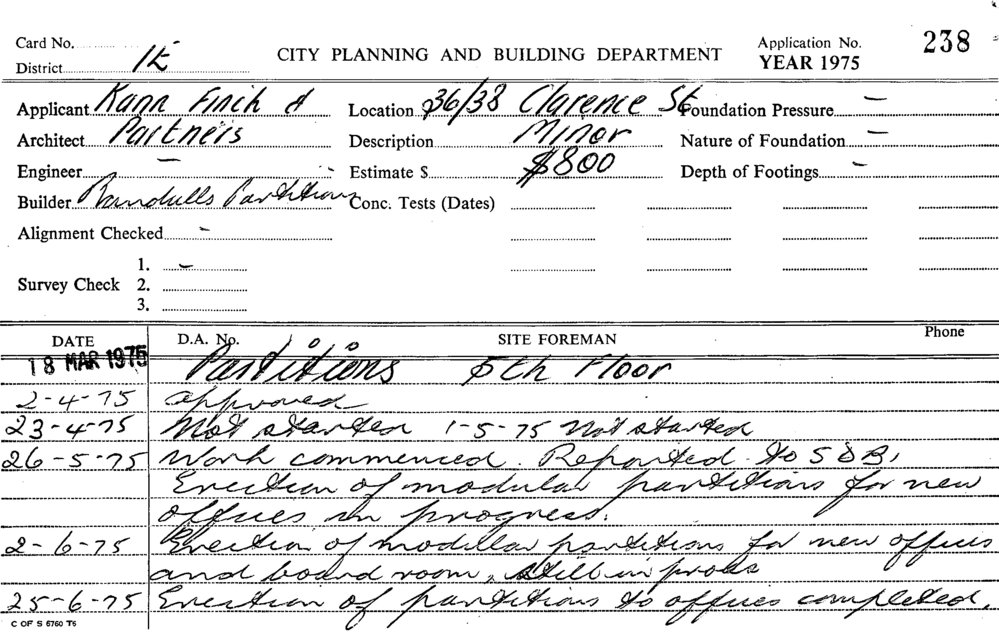 Card No.
District 1E
CITY PLANNING AND BUILDING DEPARTMENT
Application No. 238
YEAR 1975
Applicant Kann Finch &
Architect Partners
Engineer —
Builder Randulls Partitions
Alignment Checked -
Survey Check 1. -
2.
3.
Location 36/38 Clarence St
Description Minor
Estimate $ $800
Conc. Tests (Dates)
Foundation Pressure —
Nature of Foundation —
Depth of Footings -
DATE D.A. No. SITE FOREMAN Phone
18 MAR 1975 Partitions 5th Floor
2-4-75 approved
23-4-75 Not started 1-5-75 Not started
26-5-75 Work commenced. Reported to S D B,
Erection of modular partitions for new
offices in progress.
2-6-75 Erection of modular partitions for new offices
and board room, still in
25-6-75 Erection of partitions to offices completed.
C OF S 6760 T6